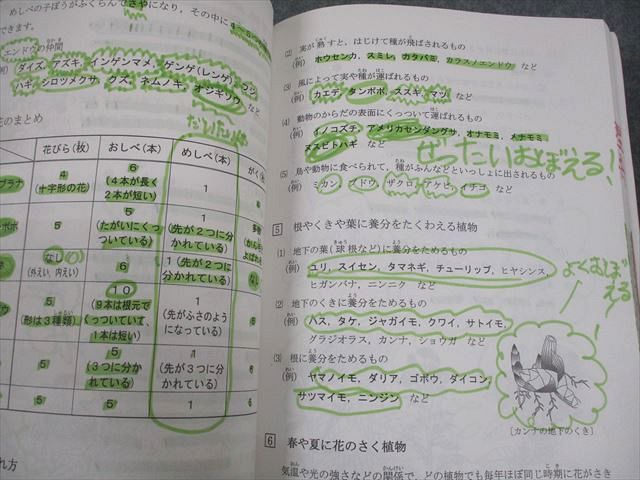 めしべの子ぼうがふくらんでさやになり，その中に
できます。
エンドウの仲間
ダイズ，アズキ，インゲンマメ，ゲンゲ（レンゲ），
ハギ，シロツメクサ，クズ，ネムノキ，オジギソウ など
花のまとめ
花びら（枚） おしべ（本） めしべ（本）
4（十字形の花） 6（4本が長く2本が短い） 1
5（たがいにくっついている） 1（先が2つに分かれている）
なし（外えい，内えい） 6 1（先が2つに分かれている）
5（形は3種類） 10（9本は根元でくっついていて，1本は短い） 1（先がふさのようになっている）
5 5（3つに分かれている） 1（先が3つに分かれている）
5 5 1 6
れ方
(2) 実が熟すと，はじけて種が飛ばされるもの
（例） ホウセンカ，スミレ，カタバミ，カラスノエンドウ など
(3) 風によって実や種が運ばれるもの
（例） カエデ，タンポポ，ススキ，マツ など
(4) 動物のからだの表面にくっついて運ばれるもの
（例） イノコズチ，アメリカセンダングサ，オナモミ，メナモミ，
ヌスビトハギ など
ぜったいおぼえる！
(5) 鳥や動物に食べられて，種がふんなどといっしょに出されるもの
（例） ミカン，ブドウ，ザクロ，アケビ，イチゴ など
5 根やくきや葉に養分をたくわえる植物
(1) 地下の葉（球根など）に養分をためるもの
（例） ユリ，スイセン，タマネギ，チューリップ，ヒヤシンス，
ヒガンバナ，ニンニク など
よくおぼえる！
(2) 地下のくきに養分をためるもの
（例） ハス，タケ，ジャガイモ，クワイ，サトイモ，
グラジオラス，カンナ，ショウガ など
(3) 根に養分をためるもの
（例） ヤマノイモ，ダリア，ゴボウ，ダイコン，
サツマイモ，ニンジン など
〔カンナの地下のくき〕
6 春や夏に花のさく植物
気温や光の強さなどの関係で，どの植物でも毎年ほぼ同じ時期に花がさき